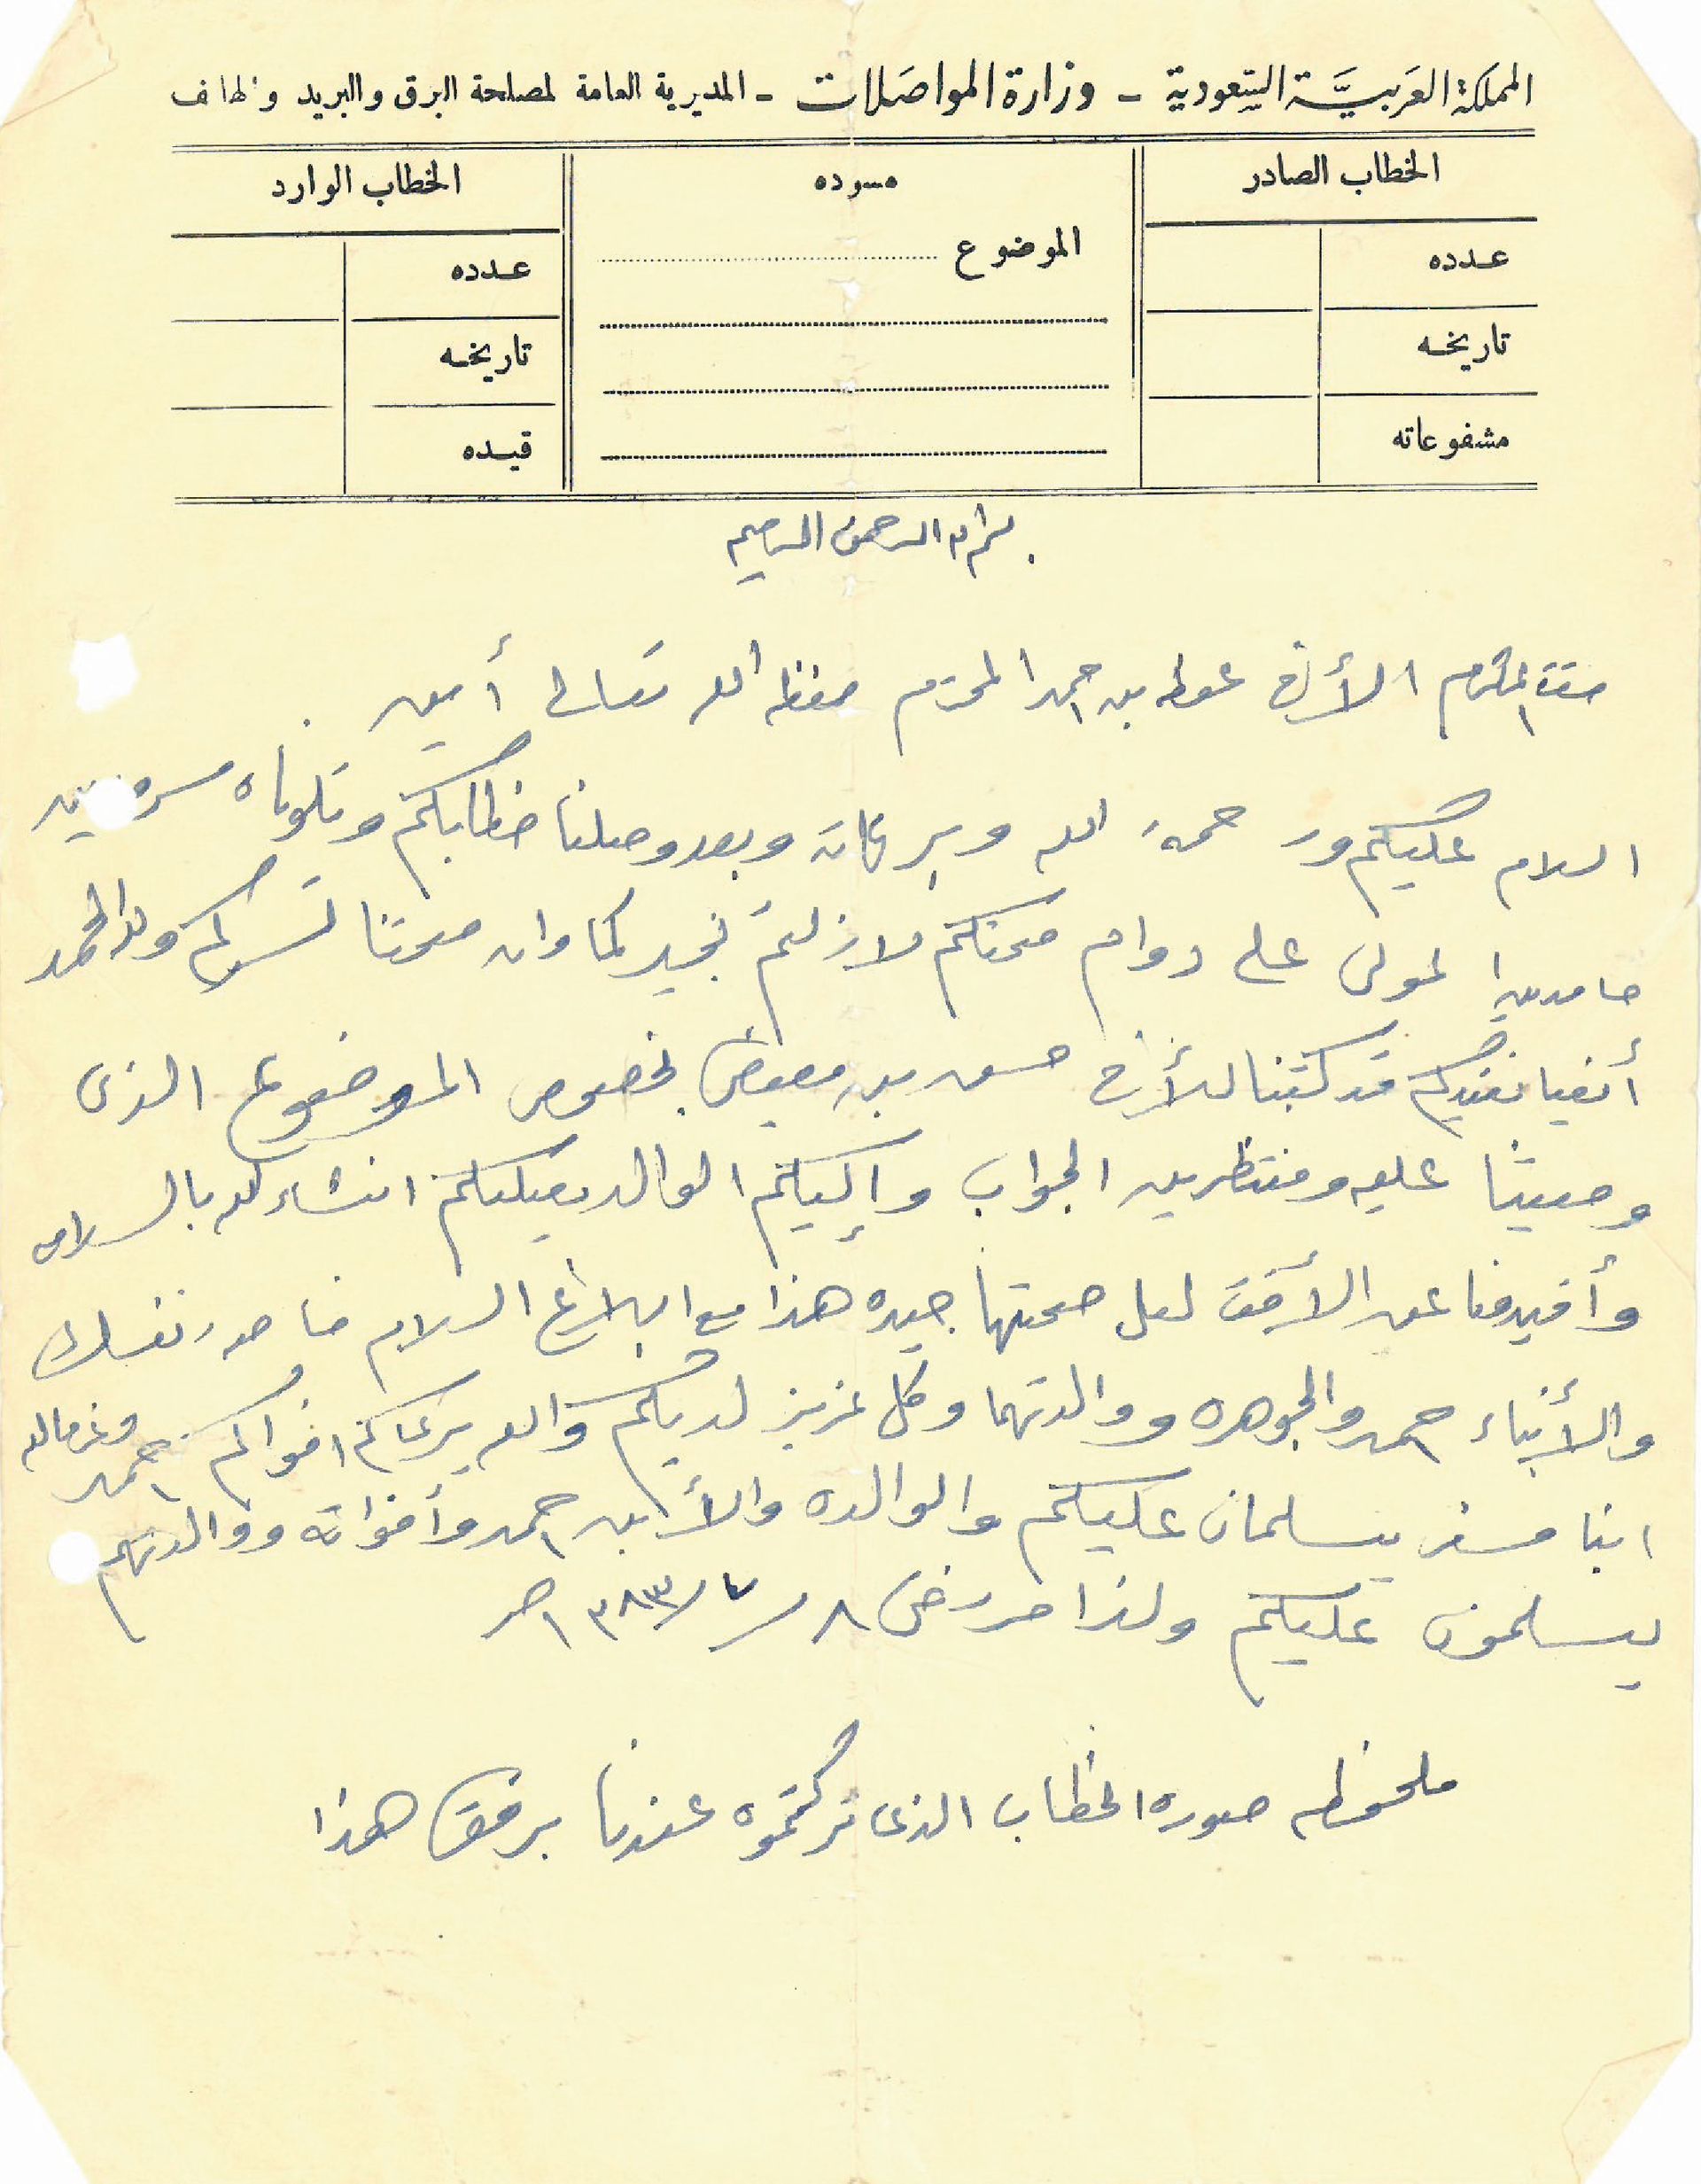 المملكة العربية السعودية - وزارة المواصلات - المديرية العامة لمصلحة البرق والبريد والهاتف
الخطاب الصادر
عدده
تاريخه
مشفوعاته
مسوده
الموضوع
الخطاب الوارد
عدده
تاريخه
قيده
بسم الله الرحمن الرحيم
حضرة المكرم الأخ عطيه بن احمد المحترم حفظه الله تعالى أمين .
السلام عليكم ورحمة الله وبركاته وبعد وصلنا خطابكم وتلوناه مسرورين
حامدين المولى على دوام صحتكم لازلتم بخير كما وان صحتنا تسركم ولله الحمد
أخيا نفيدكم قد كتبنا للأخ حسن بن معيض بخصوص الموضوع الذى
وصيتنا عليه ومنتظرين الجواب وإليكم الوالد يصلكم انشاء الله بالسلامه
وأفيدونا عن الأخت لعل صحتها جيده هذا مع ابلاغ السلام خاصه نفسك
والأبناء احمد والجوهره ووالدتهما وكل عزيز لديكم والله يرعاكم اخوانكم احمد وغرم الله
ابنا مسفر يسلمان عليكم والوالده والأبن احمد وأخواته ووالدتهم
يسلمون عليكم ولذا حرر فى ٨/٧/١٣٨٣هـ
ملحوظه صوره الخطاب الذى تركتموه عندنا برفق هذا